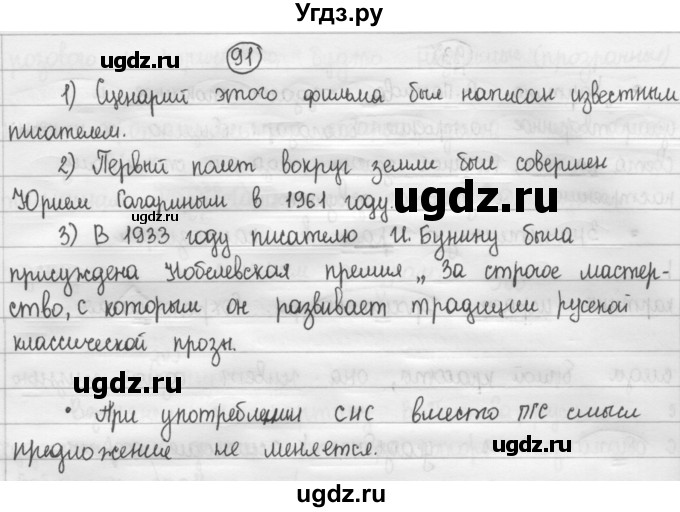 Угдз.ру
91
1) Сценарий этого фильма был написан известным
писателем.
2) Первый полет вокруг земли был совершен
Юрием Гагариным в 1961 году.
3) В 1933 году писателю И. Бунину была
присуждена Нобелевская премия „За строгое мастер-
ство, с которым он развивает традиции русской
классической прозы.
• При употреблении СИС вместо ПГС смысл
предложение не меняется.
ugdz.ru
ugdz.ru
ugdz.ru
ugdz.ru
ugdz.ru
ugdz.ru
ugdz.ru
ugdz.ru